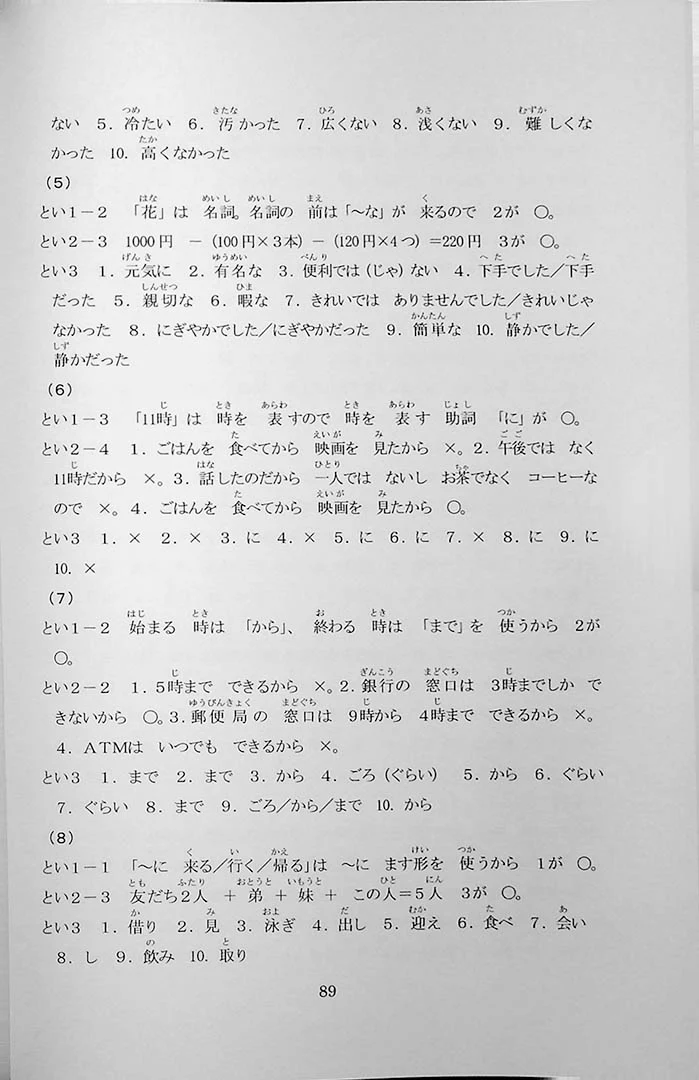 ない　5．冷たい　6．汚かった　7．広くない　8．浅くない　9．難しくな
かった　10．高くなかった
（5）
とい1－2　「花」は　名詞。名詞の　前は「～な」が　来るので　2が　○。
とい2－3　1000円　－（100円×3本）－（120円×4つ）＝220円　3が　○。
とい3　1．元気に　2．有名な　3．便利では（じゃ）ない　4．下手でした／下手
だった　5．親切な　6．暇な　7．きれいでは　ありませんでした／きれいじゃ
なかった　8．にぎやかでした／にぎやかだった　9．簡単な　10．静かでした／
静かだった
（6）
とい1－3　「11時」は　時を　表すので　時を　表す　助詞　「に」が　○。
とい2－4　1．ごはんを　食べてから　映画を　見たから　×。2．午後では　なく
11時だから　×。3．話したのだから　一人では　ないし　お茶でなく　コーヒーな
ので　×。4．ごはんを　食べてから　映画を　見たから　○。
とい3　1．×　2．×　3．に　4．×　5．に　6．に　7．×　8．に　9．に
10．×
（7）
とい1－2　始まる　時は　「から」、　終わる　時は　「まで」を　使うから　2が
○。
とい2－2　1．5時まで　できるから　×。2．銀行の　窓口は　3時までしか　で
きないから　○。3．郵便局の　窓口は　9時から　4時まで　できるから　×。
4．ATMは　いつでも　できるから　×。
とい3　1．まで　2．まで　3．から　4．ごろ（ぐらい）　5．から　6．ぐらい
7．ぐらい　8．まで　9．ごろ／から／まで　10．から
（8）
とい1－1　「～に　来る／行く／帰る」は　～に　ます形を　使うから　1が　○。
とい2－3　友だち2人　＋　弟　＋　妹　＋　この人＝5人　3が　○。
とい3　1．借り　2．見　3．泳ぎ　4．出し　5．迎え　6．食べ　7．会い
8．し　9．飲み　10．取り
89